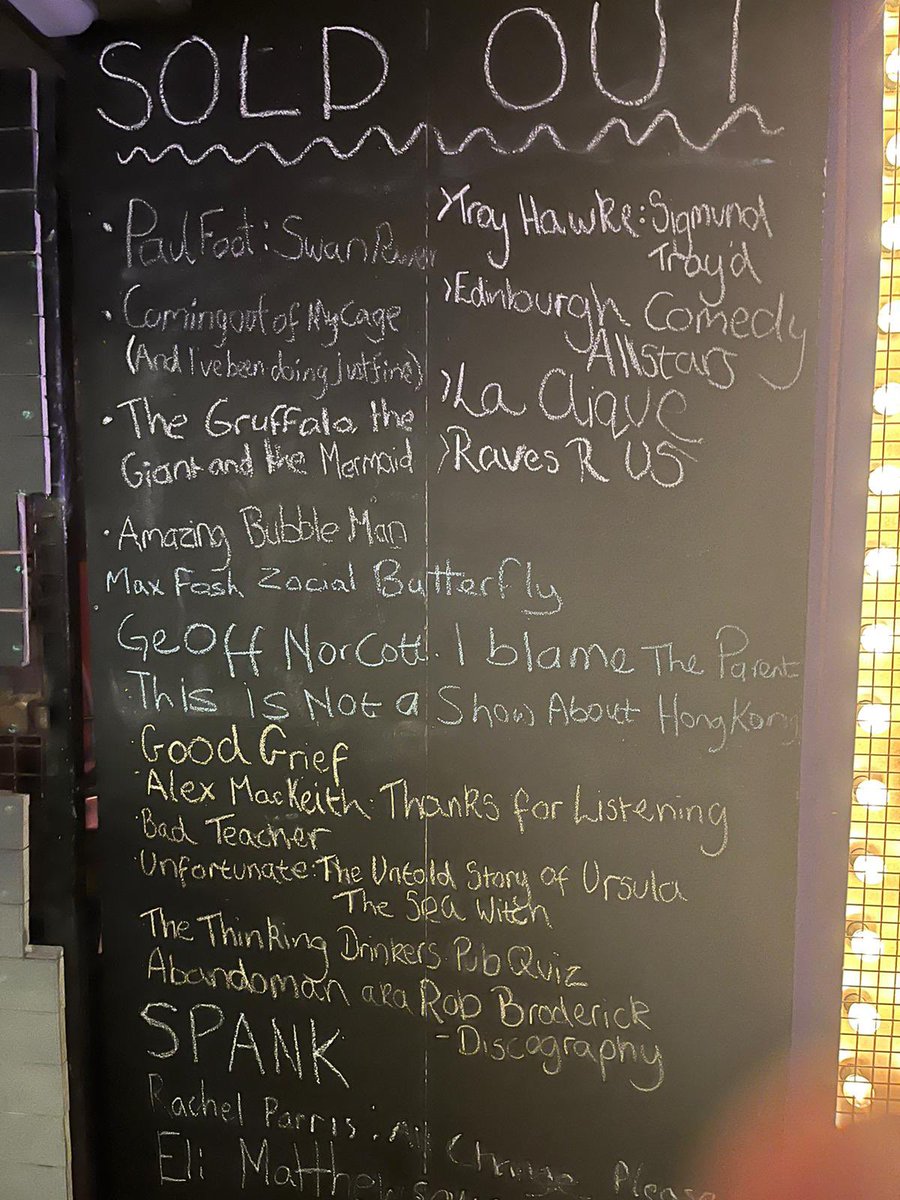 SOLD OUT
• Paul Foot: Swan Power
• Coming out of My Cage
(And I've been doing just fine)
• The Gruffalo the
Giant and the Mermaid
• Amazing Bubble Man
>Troy Hawke: Sigmund
Troy'd
>Edinburgh Comedy
Allstars
>La Clique
>Raves R US
Max Fosh Zocial Butterfly
• Geoff Norcott. I blame The Parent
• This is Not a Show About Hong Kong
• Good Grief
• Alex MacKeith. Thanks for Listening
• Bad Teacher
• Unfortunate: The Untold Story of Ursula
The Sea Witch
The Thinking Drinkers Pub Quiz
Abandoman aka Rob Broderick
- Discography
SPANK
Rachel Parris: All Change Please
Eli Matthewson